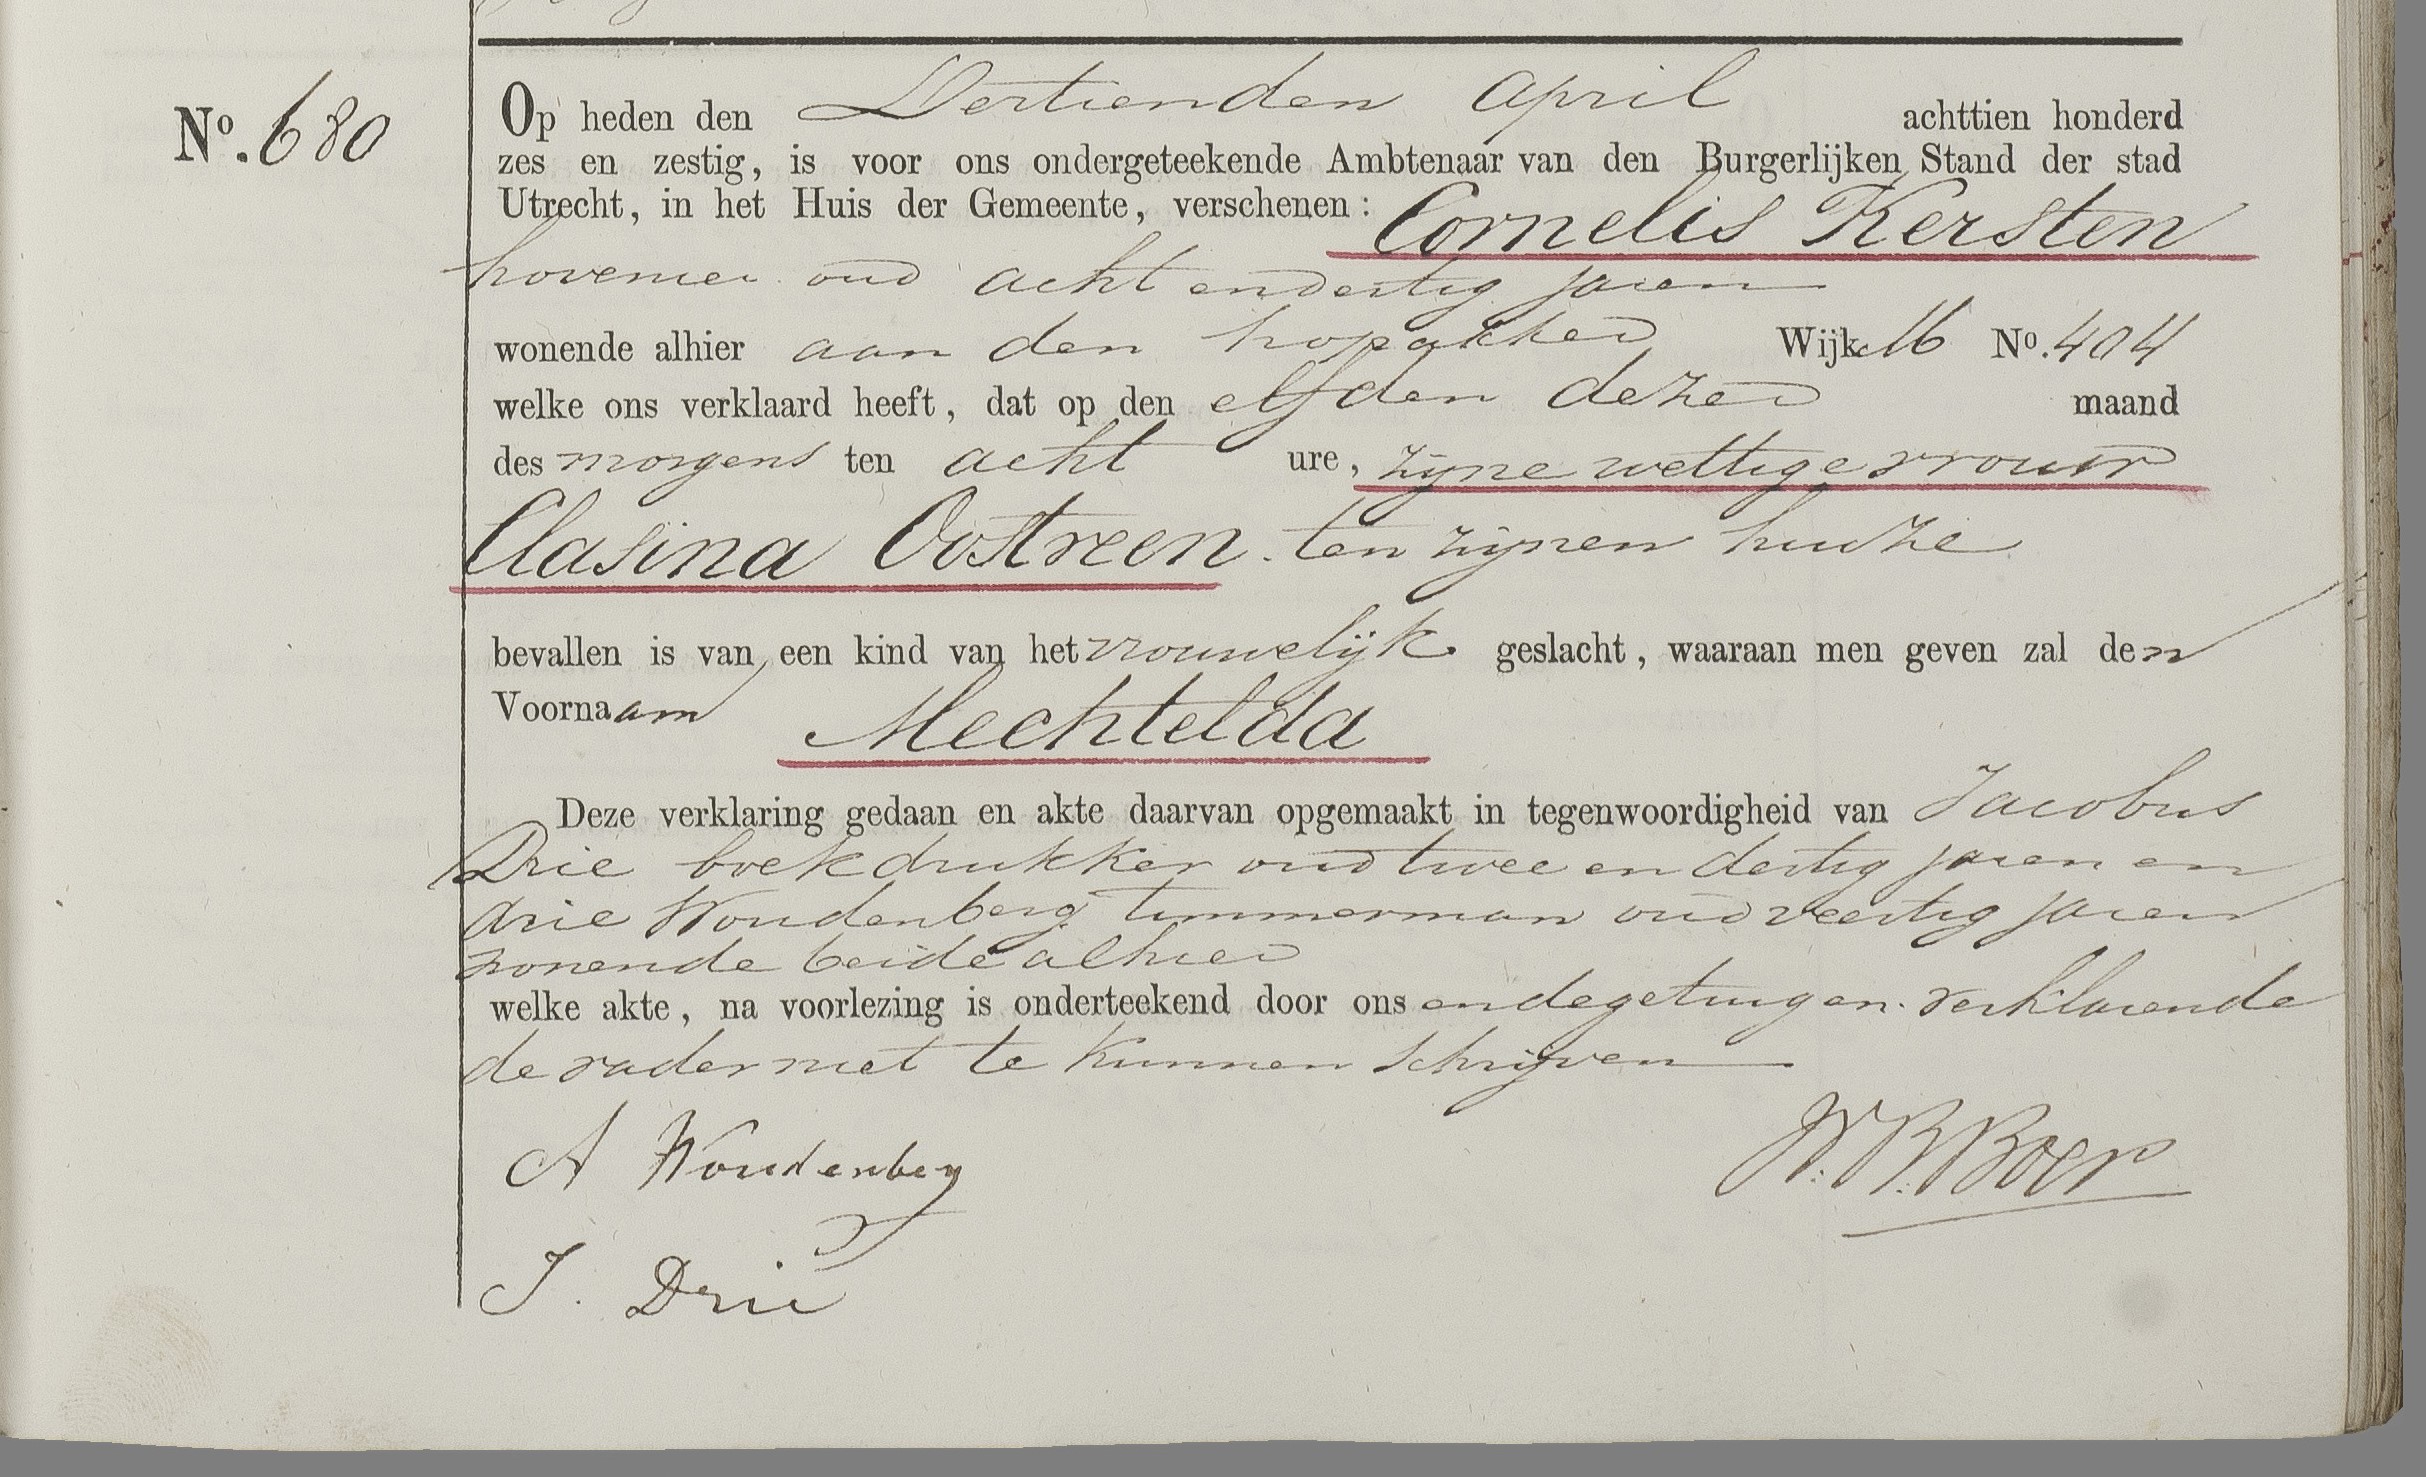 No. 680
Op heden den Dertienden April achttien honderd
zes en zestig, is voor ons ondergeteekende Ambtenaar van den Burgerlijken Stand der stad
Utrecht, in het Huis der Gemeente, verschenen: Cornelis Kersten
hovenier oud acht en dertig jaren
wonende alhier aan den Wijk 16 No. 404
welke ons verklaard heeft, dat op den elfden dezer maand
des morgens ten acht ure, zijne wettige vrouw
Clasina Oostveen ten zijnen huize
bevallen is van een kind van het vrouwelijk geslacht, waaraan men geven zal den
Voornaam Mechtelda
Deze verklaring gedaan en akte daarvan opgemaakt in tegenwoordigheid van Jacobus
Drie boekdrukker oud twee en dertig jaren en
Arie Woudenberg timmerman oud veertig jaren
wonende beide alhier
welke akte, na voorlezing is onderteekend door ons en de getuigen verklarende
de vader niet te kunnen schrijven
A Woudenberg
W. B. Boer
J. Drie